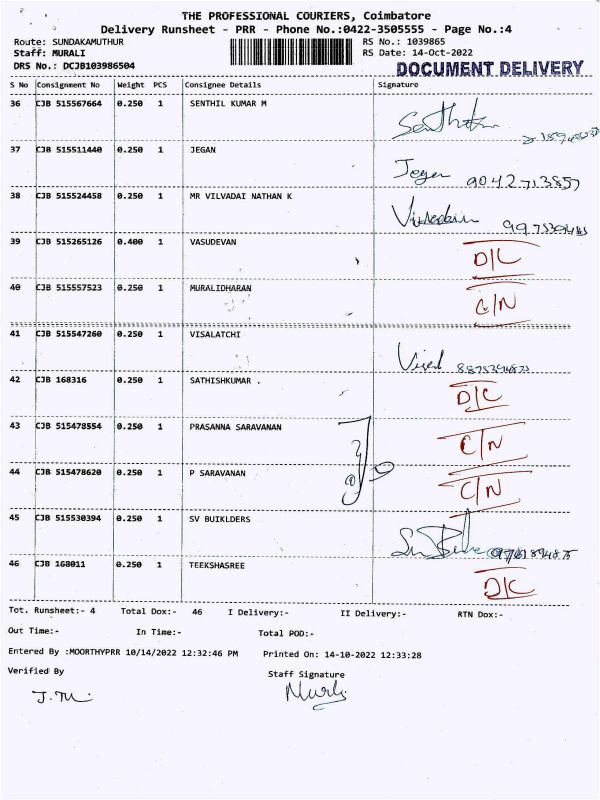 THE PROFESSIONAL COURIERS, Coimbatore
Delivery Runsheet - PRR - Phone No.:0422-3505555 - Page No.:4
Route: SUNDAKAMUTHUR RS No.: 1039865
Staff: MURALI RS Date: 14-Oct-2022
DRS No.: DCJB103986504 DOCUMENT DELIVERY
S No Consignment No Weight PCS Consignee Details Signature
36 CJB 515567664 0.250 1 SENTHIL KUMAR M
37 CJB 515511440 0.250 1 JEGAN Jegan 9042713857
38 CJB 515524458 0.250 1 MR VILVADAI NATHAN K
39 CJB 515265126 0.400 1 VASUDEVAN D/C
40 CJB 515557523 0.250 1 MURALIDHARAN C/N
41 CJB 515547260 0.250 1 VISALATCHI
42 CJB 168316 0.250 1 SATHISHKUMAR . D/C
43 CJB 515478554 0.250 1 PRASANNA SARAVANAN C/N
44 CJB 515478620 0.250 1 P SARAVANAN C/N
45 CJB 515530394 0.250 1 SV BUIKLDERS
46 CJB 168011 0.250 1 TEEKSHASREE D/C
Tot. Runsheet:- 4 Total Dox:- 46 I Delivery:- II Delivery:- RTN Dox:-
Out Time:- In Time:- Total POD:-
Entered By :MOORTHYPRR 10/14/2022 12:32:46 PM Printed On: 14-10-2022 12:33:28
Verified By Staff Signature